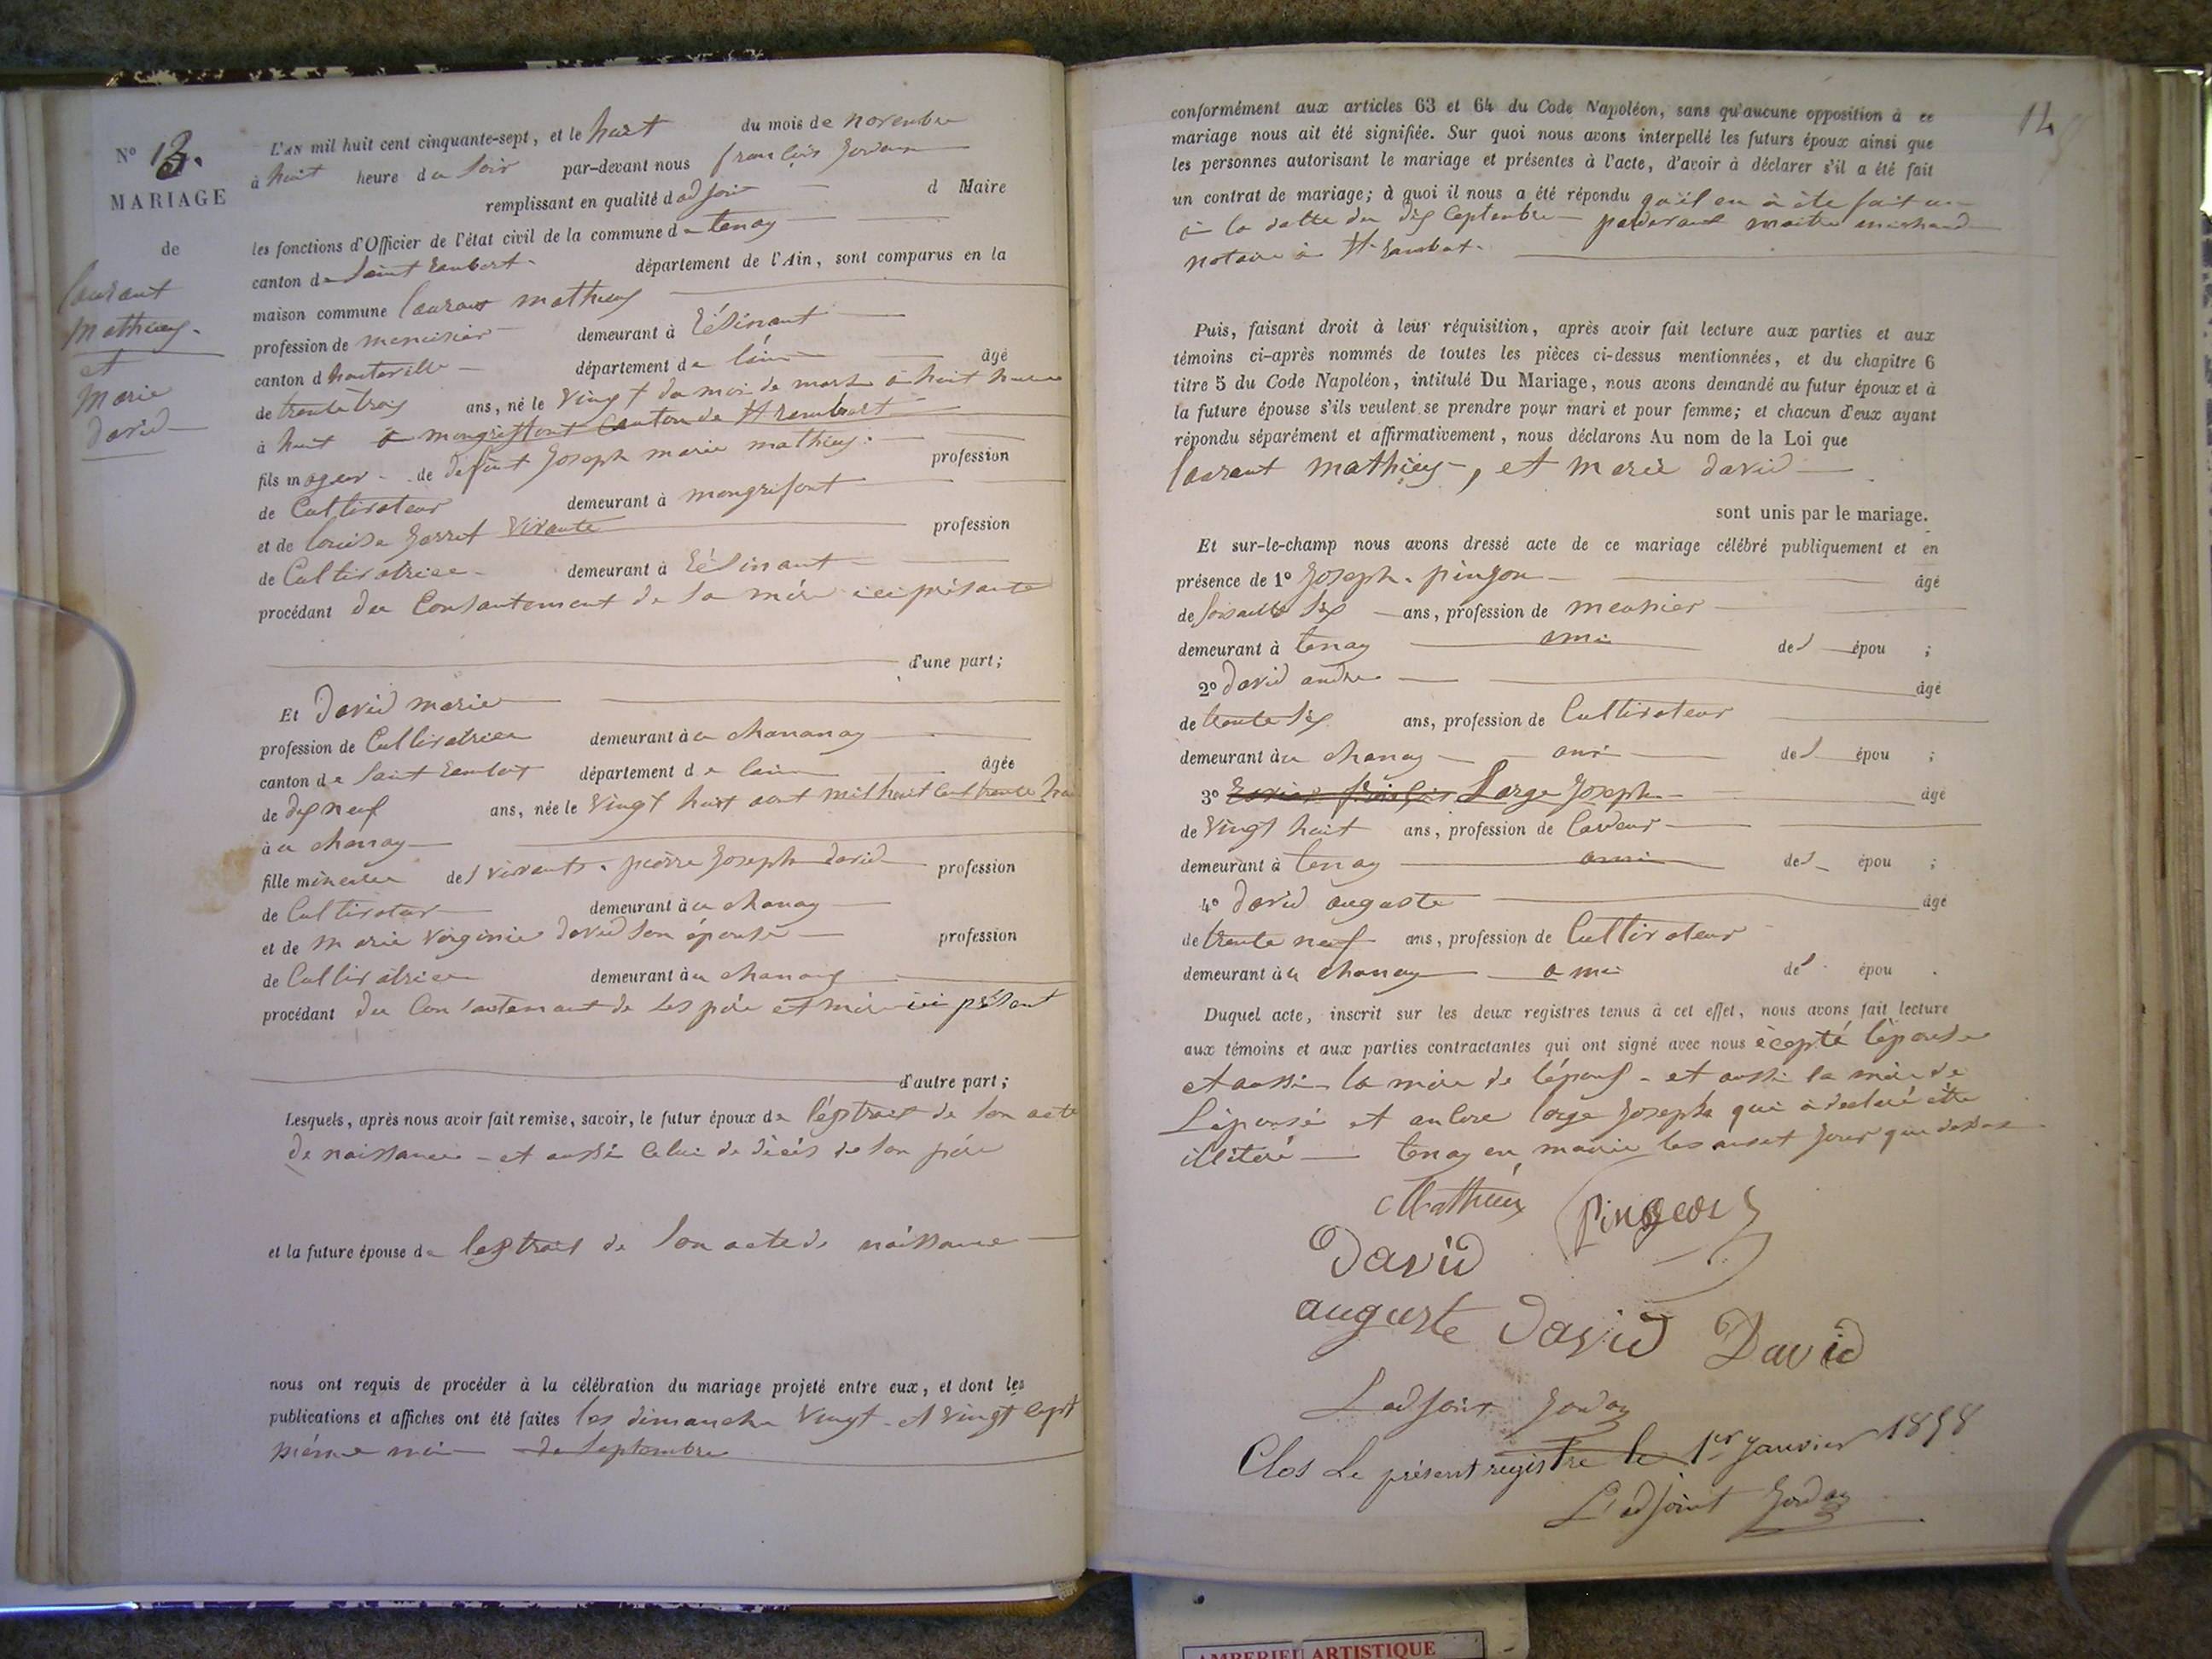 N° 13.
MARIAGE
de
laurant
Mathieu.
et
Marie
david
L'AN mil huit cent cinquante-sept, et le huit du mois de novembre
à huit heure du soir par-devant nous françois Jordan
remplissant en qualité d adjoint d Maire
les fonctions d'Officier de l'état civil de la commune de tenay
canton de saint Rambert département de l'Ain, sont comparus en la
maison commune laurant mathieu
profession de menuisier demeurant à
canton d hauteville département de l'ain âgé
de trente trois ans, né le Vingt du mois de mars à huit heure
à huit à mongriffont Canton de St rambert
fils mageur de defunt Joseph marie mathieu profession
de Cultivateur demeurant à mongrifont
et de louise Jarret vivante profession
de Cultivatrice demeurant à
procédant du Consantement de sa mère ici présante
d'une part;
Et David marie
profession de Cultivatrice demeurant à a chananay
canton de saint Rambert département de lain âgée
de dix neuf ans, née le Vingt huit aout mil huit cent trente
à a chanay
fille mineure des vivants pierre Joseph david profession
de Cultivateur demeurant à a chanay
et de marie virginie david son épouse profession
de Cultivatrice demeurant à a chanay
procédant du Consantemant de ses père et mère ici présent
d'autre part;
Lesquels, après nous avoir fait remise, savoir, le futur époux de l'éxtrait de son acte
de naissance et aussi celui de décès de son père
et la future épouse de lextrait de son acte de naissance
nous ont requis de procéder à la célébration du mariage projeté entre eux, et dont les
publications et affiches ont été faites les dimanche vingt et vingt sept
mois de septembre
14
conformément aux articles 63 et 64 du Code Napoléon, sans qu'aucune opposition à ce
mariage nous ait été signifiée. Sur quoi nous avons interpellé les futurs époux ainsi que
les personnes autorisant le mariage et présentes à l'acte, d'avoir à déclarer s'il a été fait
un contrat de mariage; à quoi il nous a été répondu qu'il en à éte fait un
à la datte du dix septembre pardevant maitre
notaire à St Rambert.
Puis, faisant droit à leur réquisition, après avoir fait lecture aux parties et aux
témoins ci-après nommés de toutes les pièces ci-dessus mentionnées, et du chapitre 6
titre 5 du Code Napoléon, intitulé Du Mariage, nous avons demandé au futur époux et à
la future épouse s'ils veulent se prendre pour mari et pour femme; et chacun d'eux ayant
répondu séparément et affirmativement, nous déclarons Au nom de la Loi que
laurant mathieu, et marie david
sont unis par le mariage.
Et sur-le-champ nous avons dressé acte de ce mariage célébré publiquement et en
présence de 1° Joseph pingon âgé
de soisante six ans, profession de meunier
demeurant à tenay ami des épou ;
2° david andre âgé
de trente six ans, profession de Cultivateur
demeurant à a chanay ami des épou ;
3° Large Joseph âgé
de vingt huit ans, profession de Cardeur
demeurant à tenay ami des épou ;
4° david auguste âgé
de trente neuf ans, profession de Cultivateur
demeurant à a chanay ami des épou .
Duquel acte, inscrit sur les deux registres tenus à cet effet, nous avons fait lecture
aux témoins et aux parties contractantes qui ont signé avec nous écepté lépouse
et aussi la mère de lépoux et aussi la mère de
Lépouse et ancore large Joseph qui à declaré être
illitéré tenay en mairie les an et jour que dessus
Mathieu pingeon
David
auguste David David
Ladjoint Jordan
Clos le présent registre le 1er janvier 1858
L'adjoint Jordan
AMBERIEU ARTISTIQUE